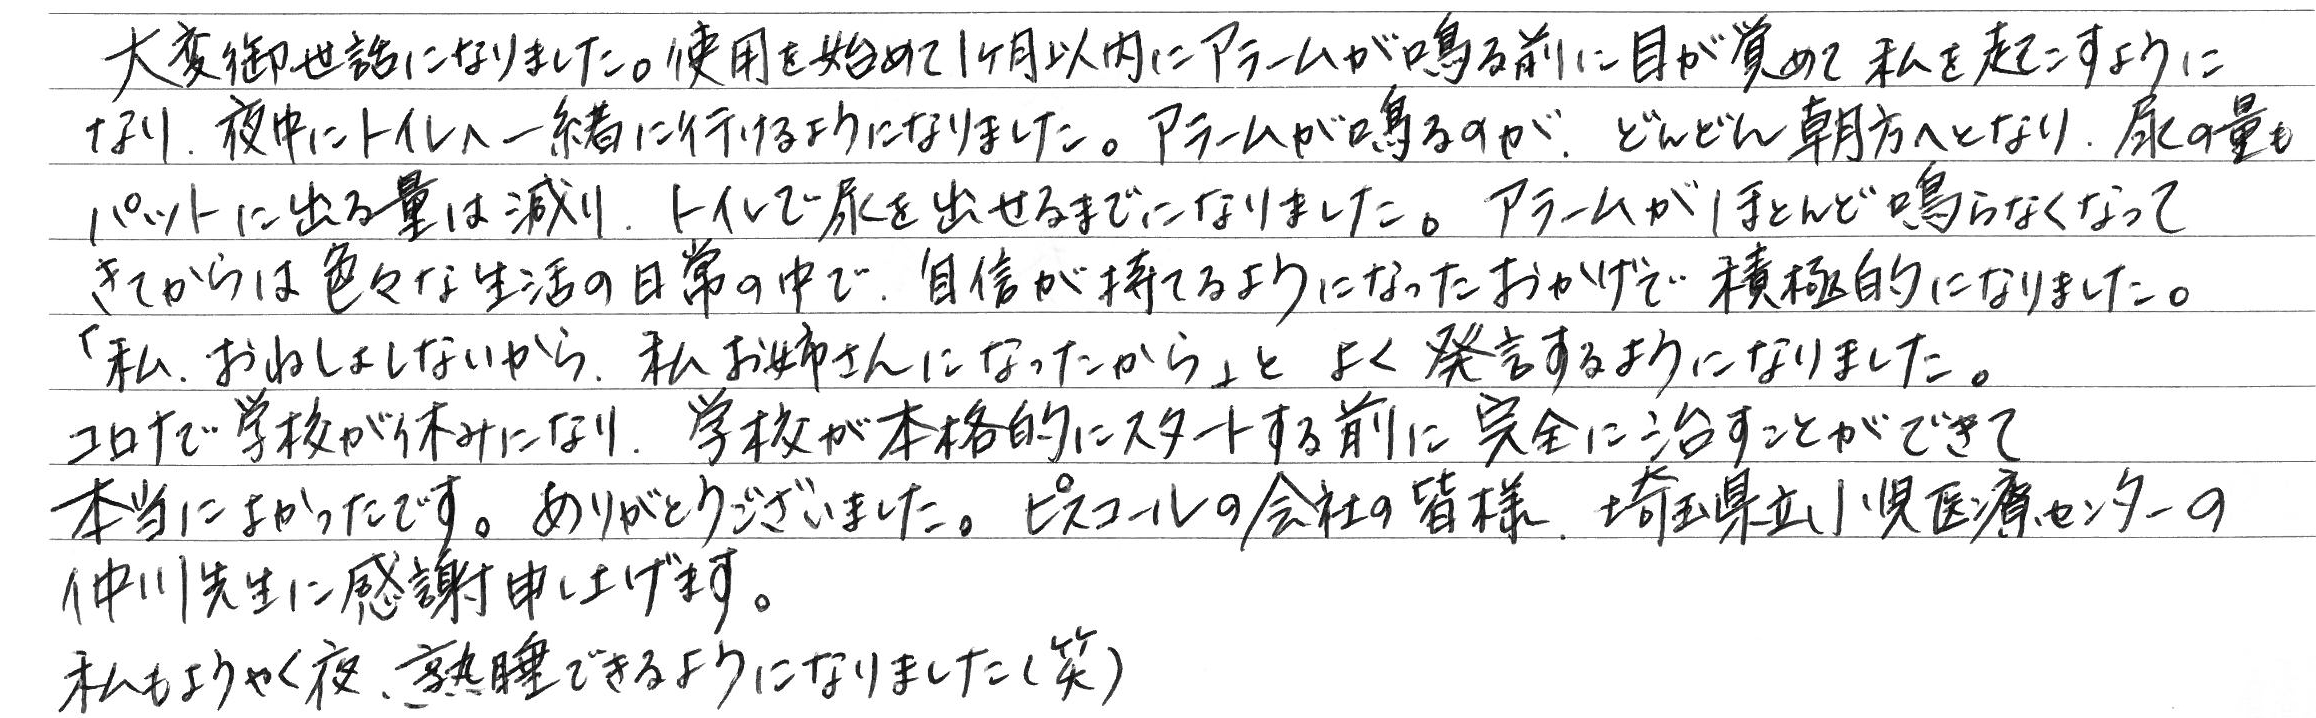 大変御世話になりました。使用を始めて1ヶ月以内にアラームが鳴る前に目が覚めて私を起こすように
なり、夜中にトイレへ一緒に行けるようになりました。アラームが鳴るのが、どんどん朝方へとなり、尿の量も
パットに出る量は減り、トイレで尿を出せるまでになりました。アラームがほとんど鳴らなくなって
きてからは色々な生活の日常の中で、自信が持てるようになったおかげで積極的になりました。
「私、おねしょしないから、私お姉さんになったから」と よく発言するようになりました。
コロナで学校が休みになり、学校が本格的にスタートする前に完全に治すことができて
本当によかったです。ありがとうございました。ピスコールの会社の皆様、埼玉県立小児医療センターの
仲川先生に感謝申し上げます。
私もようやく夜、熟睡できるようになりました（笑）